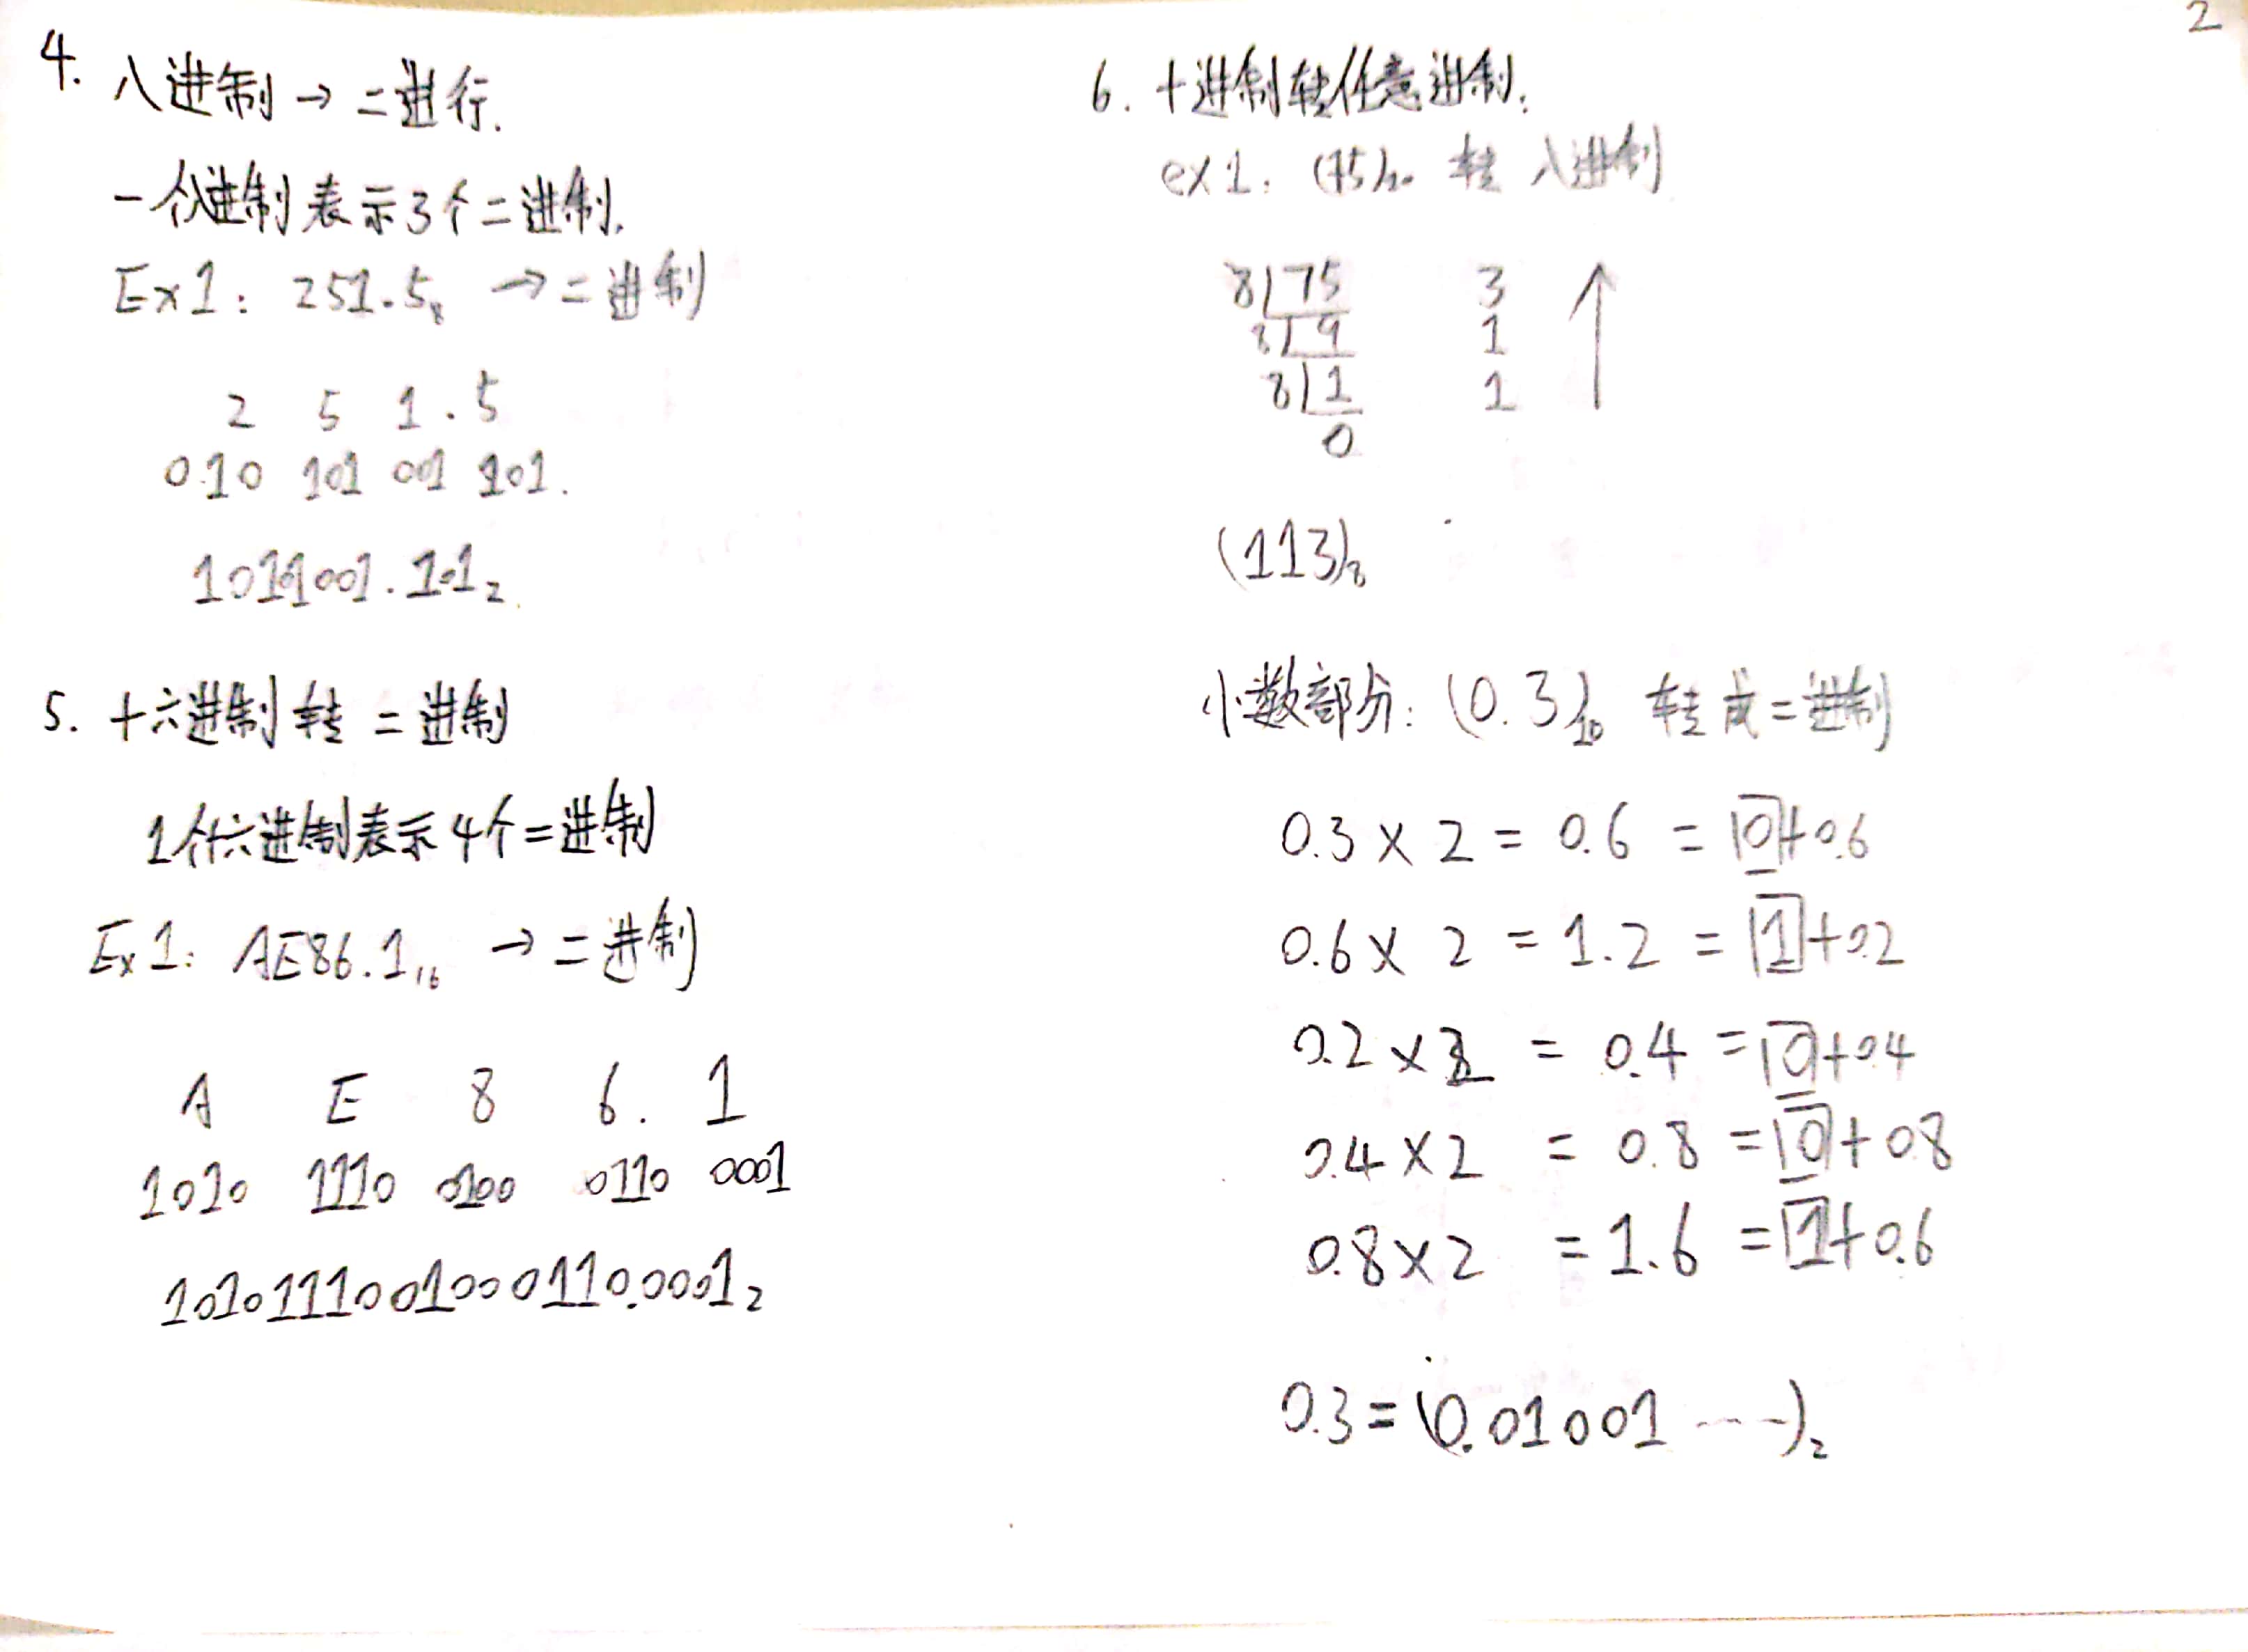 2
4. 八进制→二进行.
一个八进制表示3个二进制.
Ex1: 251.5₈ →二进制
2 5 1 . 5
010 101 001 101.
1011001.101₂
5. 十六进制转二进制
1个十六进制表示4个二进制
Ex1: AE86.1₁₆ →二进制
A E 8 6. 1
1010 1110 0100 0110 0001
1010111001000110.0001₂
6. 十进制转任意进制:
ex1: (75)₁₀ 转八进制
8 75 3
8 9 1
8 1 1
0
(113)₈
小数部分: (0.3)₁₀ 转成二进制
0.3 × 2 = 0.6 = 0+0.6
0.6 × 2 = 1.2 = 1+0.2
0.2 × 2 = 0.4 = 0+0.4
0.4 × 2 = 0.8 = 0+0.8
0.8 × 2 = 1.6 = 1+0.6
0.3 = (0.01001 ----)₂